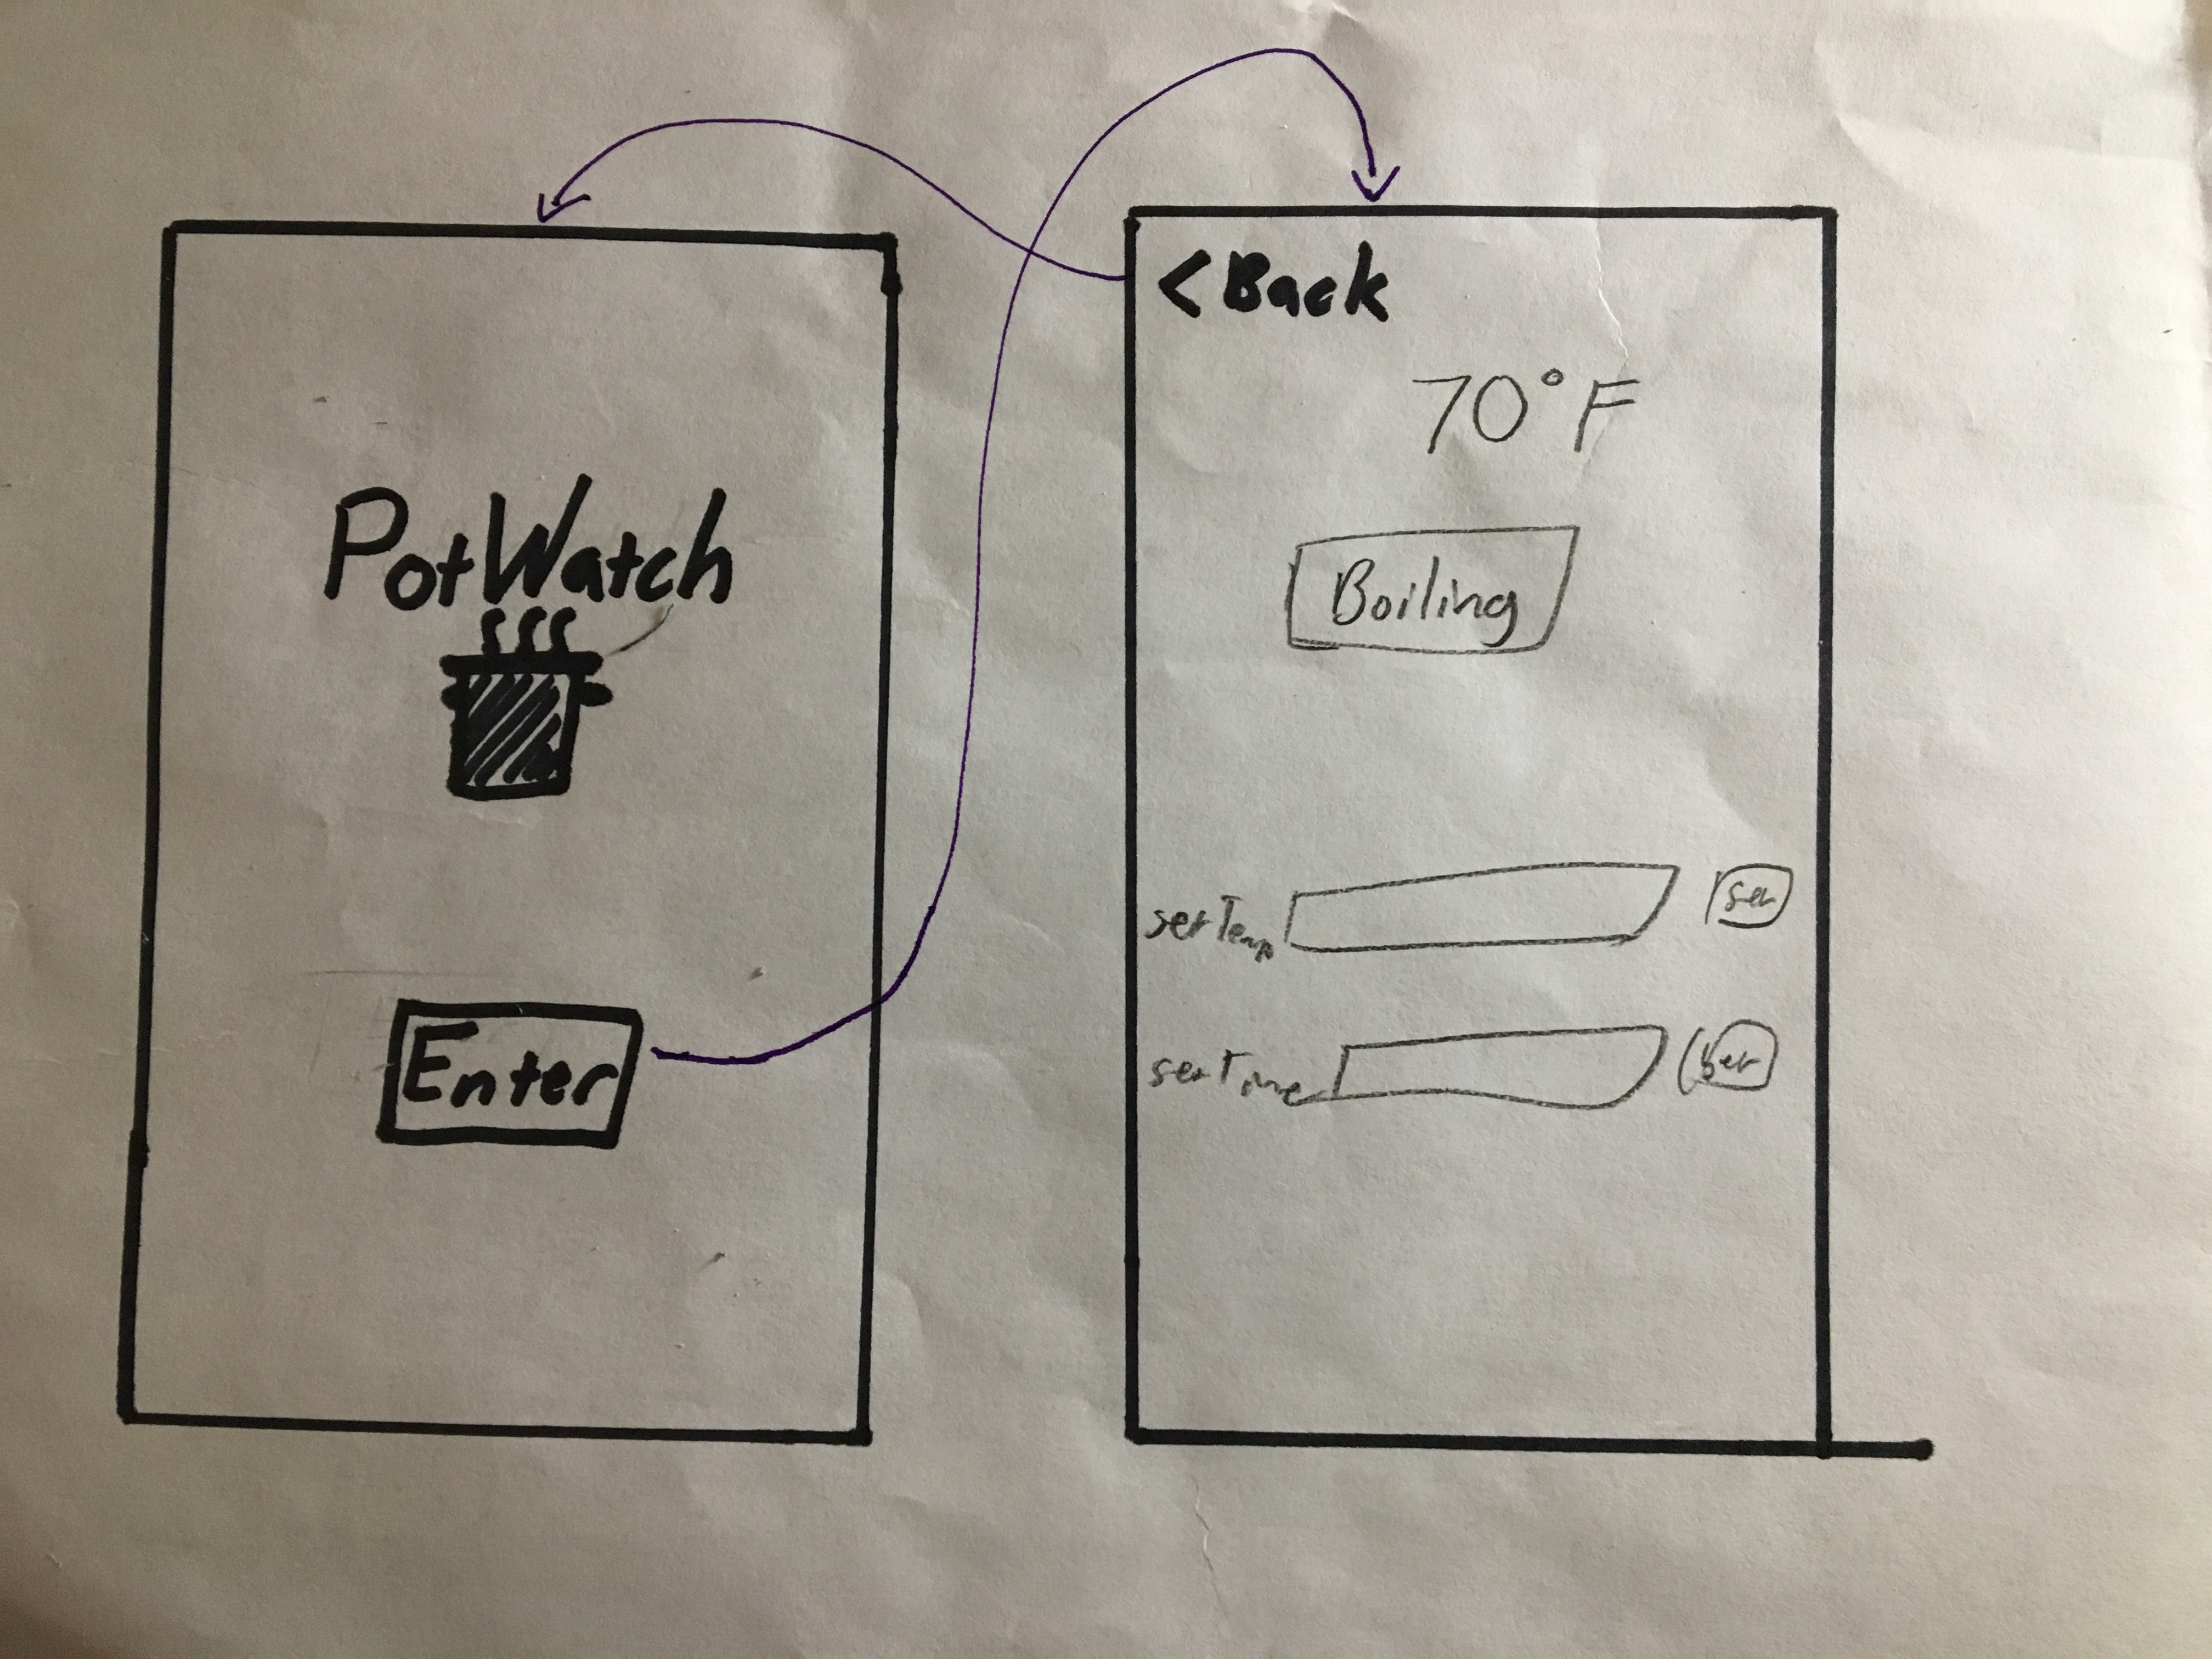 PotWatch
Enter
<Back
70°F
Boiling
set Temp
set
set Time
set